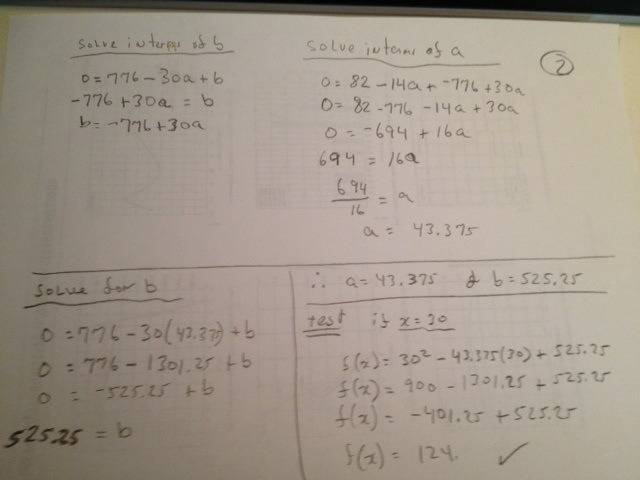 Solve in terms of b
0 = 776 - 30a + b
-776 + 30a = b
b = -776 + 30a
Solve in terms of a
2
0 = 82 - 14a + -776 + 30a
0 = 82 - 776 - 14a + 30a
0 = -694 + 16a
694 = 16a
694/16 = a
a = 43.375
Solve for b
0 = 776 - 30(43.375) + b
0 = 776 - 1301.25 + b
0 = -525.25 + b
525.25 = b
∴ a = 43.375 & b = 525.25
test if x = 30
f(x) = 30² - 43.375(30) + 525.25
f(x) = 900 - 1301.25 + 525.25
f(x) = -401.25 + 525.25
f(x) = 124. ✓